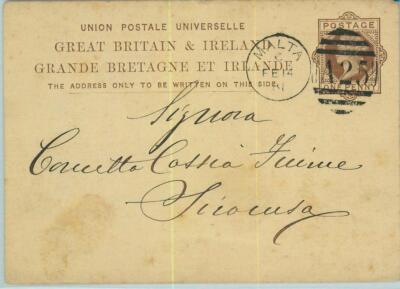 UNION POSTALE UNIVERSELLE
GREAT BRITAIN & IRELAND
GRANDE BRETAGNE ET IRLANDE
THE ADDRESS ONLY TO BE WRITTEN ON THIS SIDE
MALTA
FE 14
POSTAGE
A 25
ONE PENNY
Signora
Concetta Cassia
Siracusa